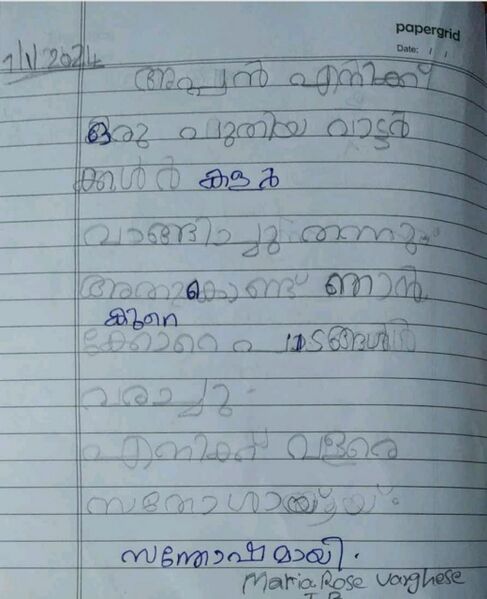 papergrid
Date: / /
1/1/2024
അപ്പൻ എനിക്ക്
ഒരു പുതിയ വാട്ടർ
കളർ
വാങ്ങിച്ചു തന്നു.
അതുകൊണ്ട് ഞാൻ
കുറെ
വരാച്ചു.
എനിക്ക് വളരെ
സന്തോഷമായി.
Maria Rose Varghese
I B